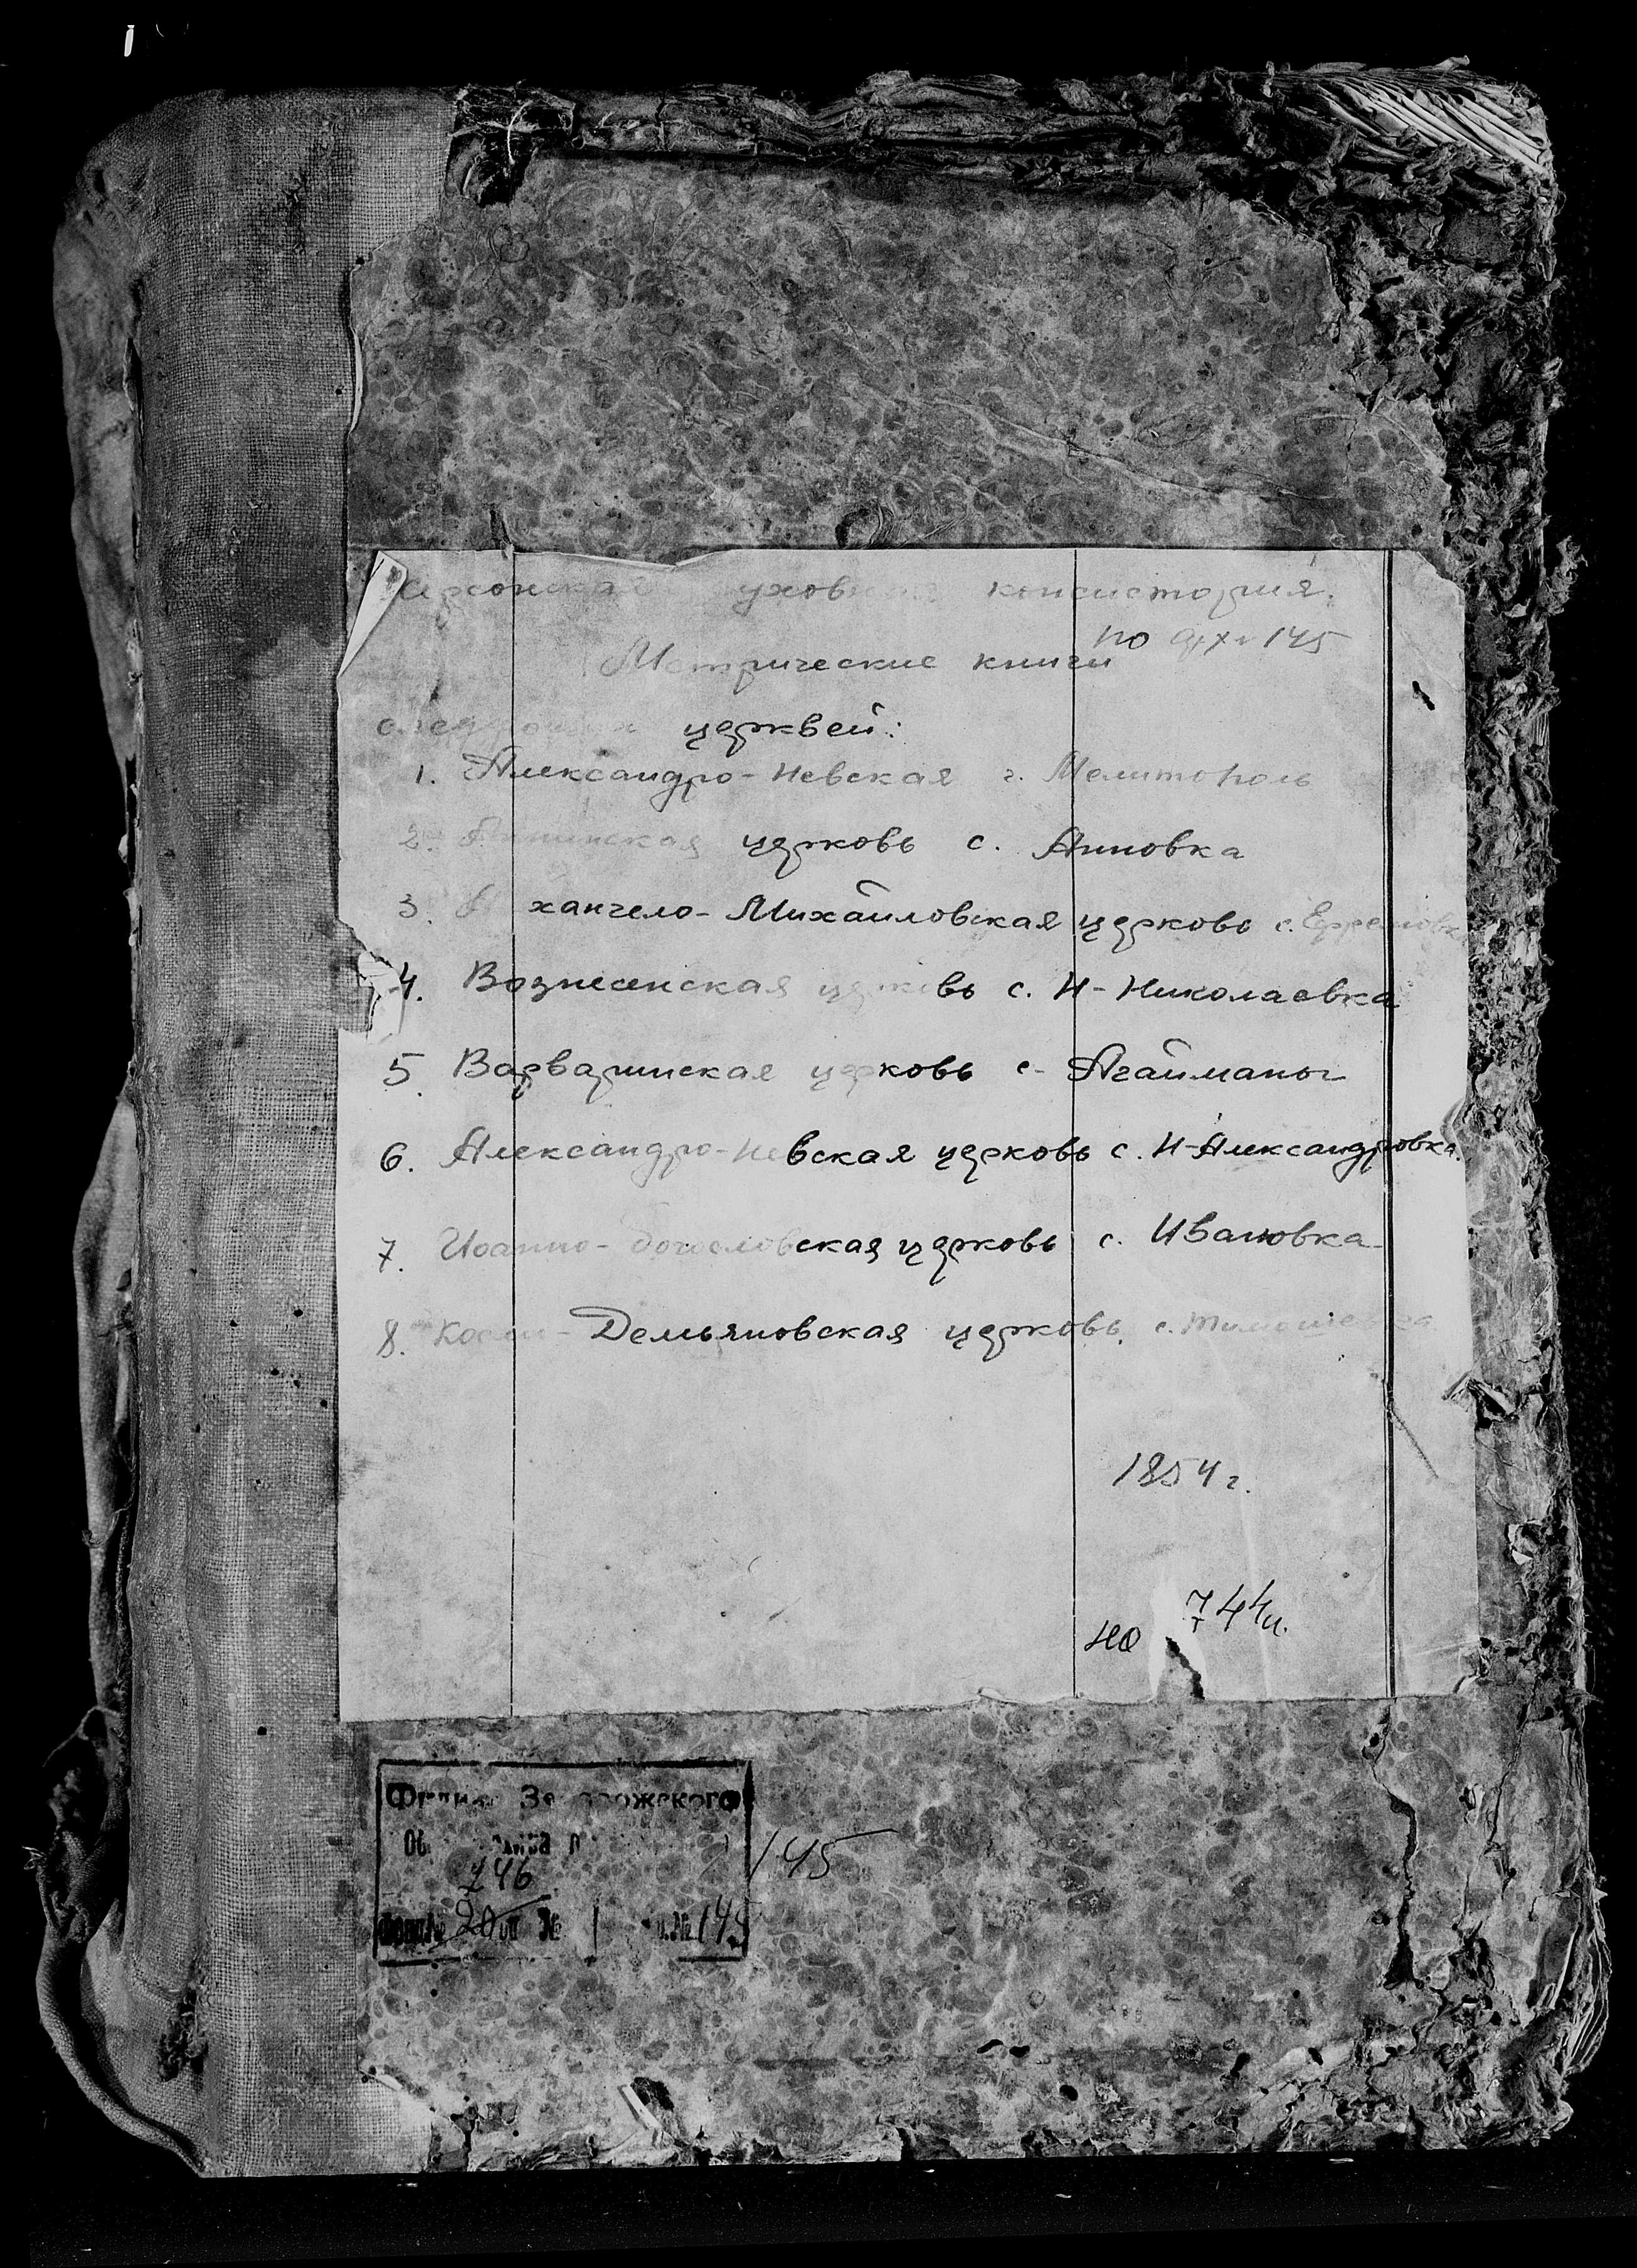 консистория.
по арх. 145
Метрические книги
следующих церквей:
1. Александро-Невская г. Мелитополь
2. Аннинская церковь с. Анновка
3. хангело-Михайловская церковь с. Ефремовка
4. Вознесенская церковь с. Н-Николаевка
5. Варваринская церковь с. Агайманы
6. Александро-Невская церковь с. Н-Александровка.
7. Иоанно-Богословская церковь с. Ивановка
8. Косми-Демьяновская церковь с. Тимошевка
1854 г.
на 744л.
145
246
№ 145